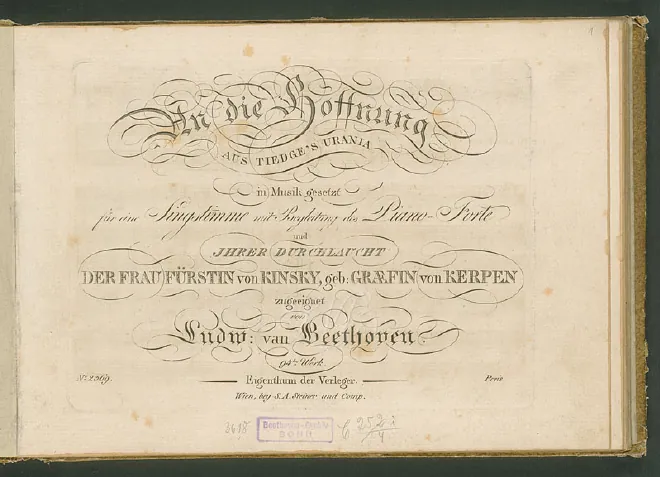 An die Hoffnung
AUS TIEDGE'S URANIA
in Musik gesetzt
für eine Singstimme mit Begleitung des Piano-Forte
und
JHRER DURCHLAUCHT
DER FRAU FÜRSTIN von KINSKY, geb: GRÆFIN von KERPEN
zugeeignet
von
Ludw: van Beethoven.
94tes Werk.
No. 2369. Eigenthum der Verleger.
Wien, bey S.A. Steiner und Comp.
Beethoven-Haus
BONN